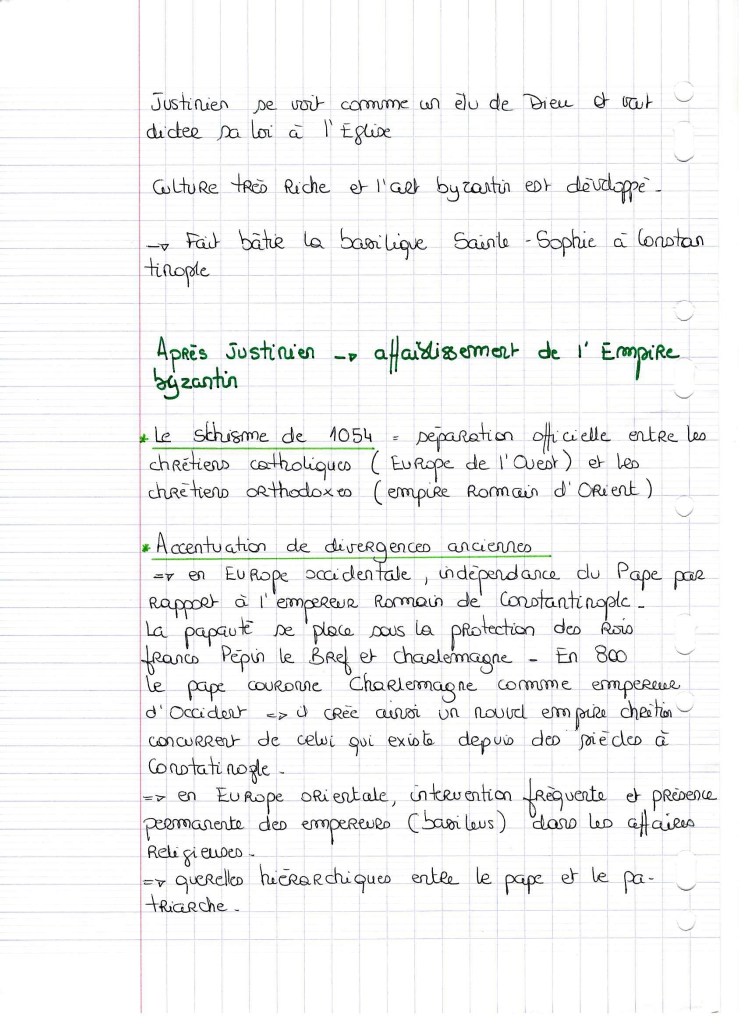 Justinien se voit comme un élu de Dieu et veut
dicter sa loi à l'Eglise
Culture très riche et l'art byzantin est développé.
→ Fait bâtir la basilique Sainte-Sophie à Constan
tinople
Après Justinien → affaiblissement de l'Empire
byzantin
* Le schisme de 1054 = séparation officielle entre les
chrétiens catholiques (Europe de l'Ouest) et les
chrétiens orthodoxes (empire Romain d'Orient)
* Accentuation de divergences anciennes
=> en Europe occidentale, indépendance du Pape par
rapport à l'empereur Romain de Constantinople.
La papauté se place sous la protection des Rois
francs Pépin le Bref et Charlemagne - En 800
le pape couronne Charlemagne comme empereur
d'Occident => il crée ainsi un nouvel empire chrétien
concurrent de celui qui existe depuis des siècles à
Constatinople.
=> en Europe orientale, intervention fréquente et présence
permanente des empereurs (basileus) dans les affaires
Religieuses.
=> querelles hiérarchiques entre le pape et le pa-
triarche.